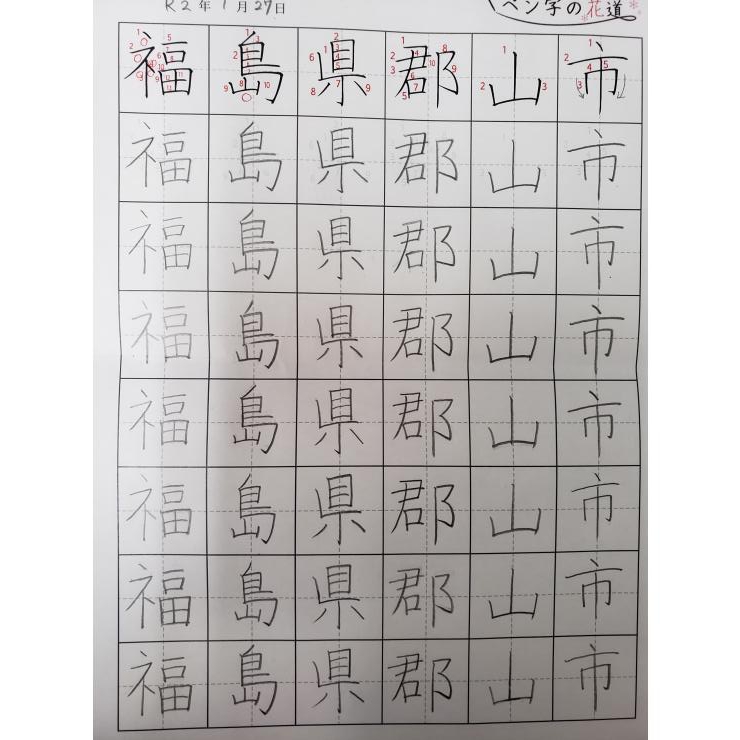 R2年1月27日
ペン字の花道
福島県郡山市
福島県郡山市
福島県郡山市
福島県郡山市
福島県郡山市
福島県郡山市
福島県郡山市
福島県郡山市